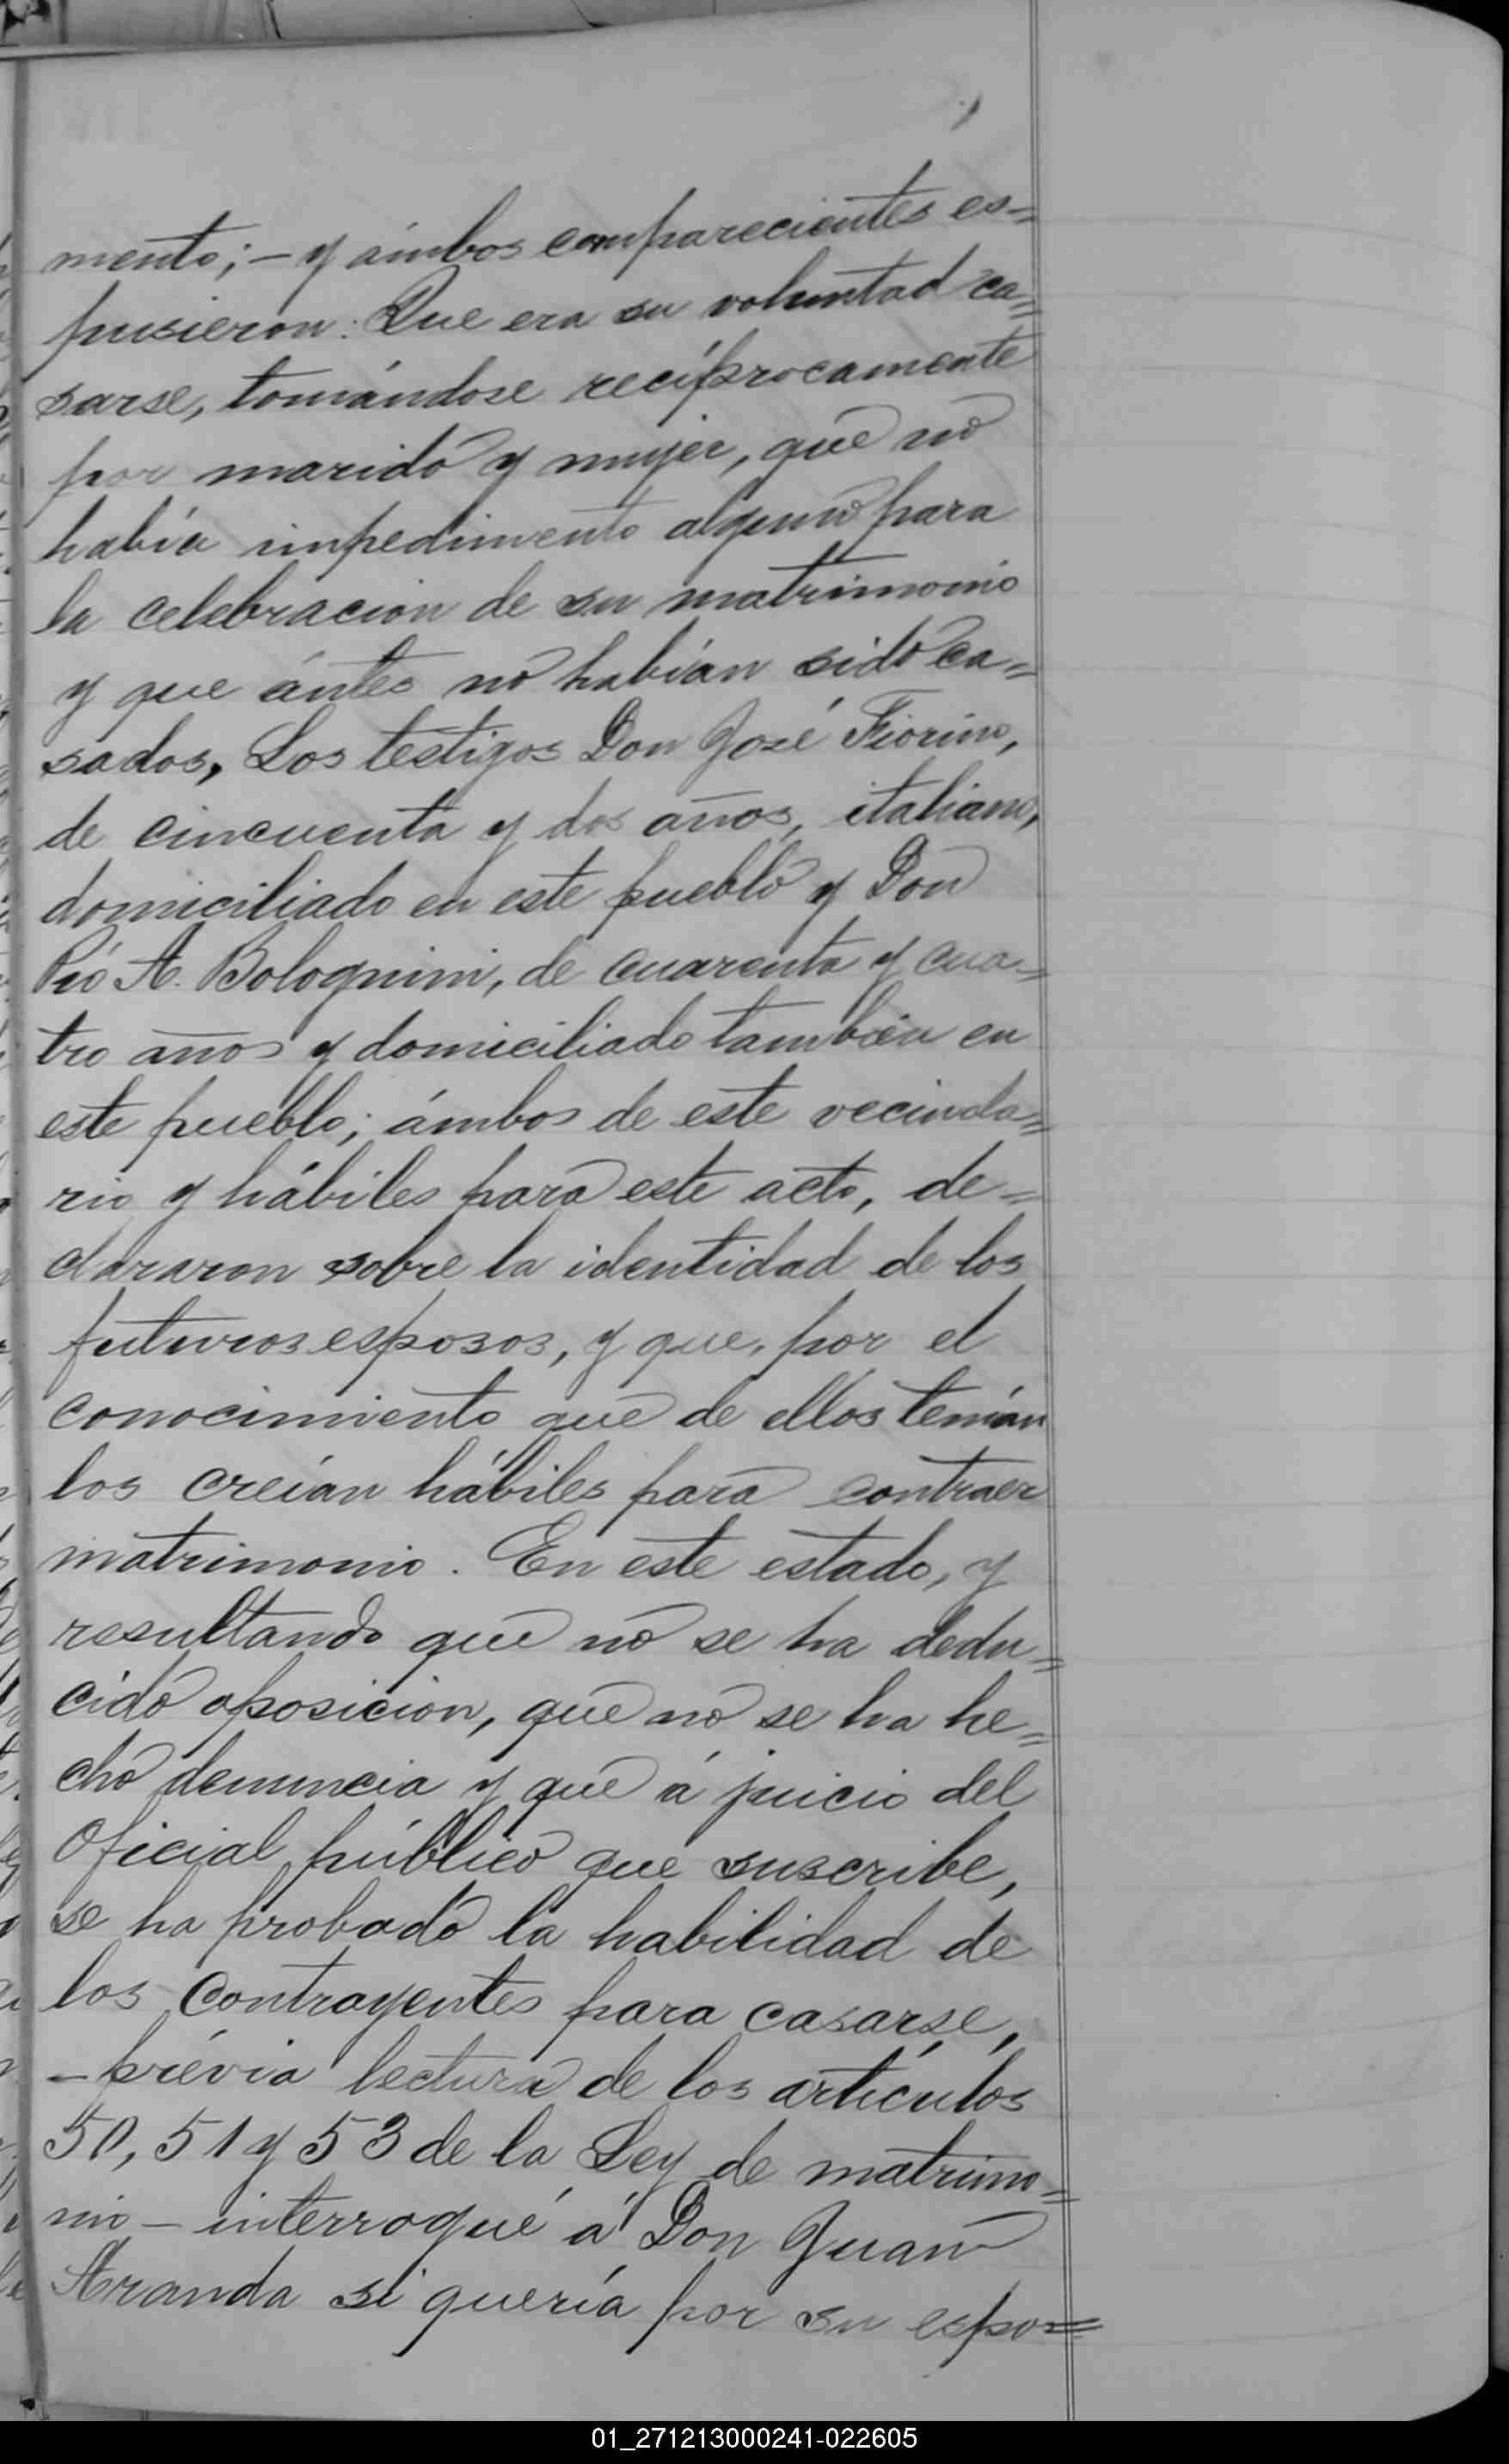 mento;- y ámbos comparecientes es=
pusieron: Que era su voluntad ca=
sarse, tomándose recíprocamente
por marido y mujer, que no
había impedimento alguno para
la celebracion de su matrimonio
y que ántes no habían sido ca=
sados, Los testigos Don José Fiorino,
de cincuenta y dos años, italiano,
domiciliado en este pueblo y Don
Pío A. Bolognini, de cuarenta y cua=
tro años y domiciliado tambien en
este pueblo; ámbos de este vecinda=
rio y hábiles para este acto, de=
clararon sobre la identidad de los
futuros esposos, y que, por el
conocimiento que de ellos tenían
los creían hábiles para contraer
matrimonio. En este estado, y
resultando que no se ha dedu=
cido oposicion, que no se ha he=
cho denuncia y que á juicio del
Oficial público que suscribe,
se ha probado la habilidad de
los contrayentes para casarse,
-prévia lectura de los artículos
50, 51 y 53 de la Ley de matrimo=
nio - interrogué á Don Juan
Aranda si quería por su espo=
01_271213000241-022605